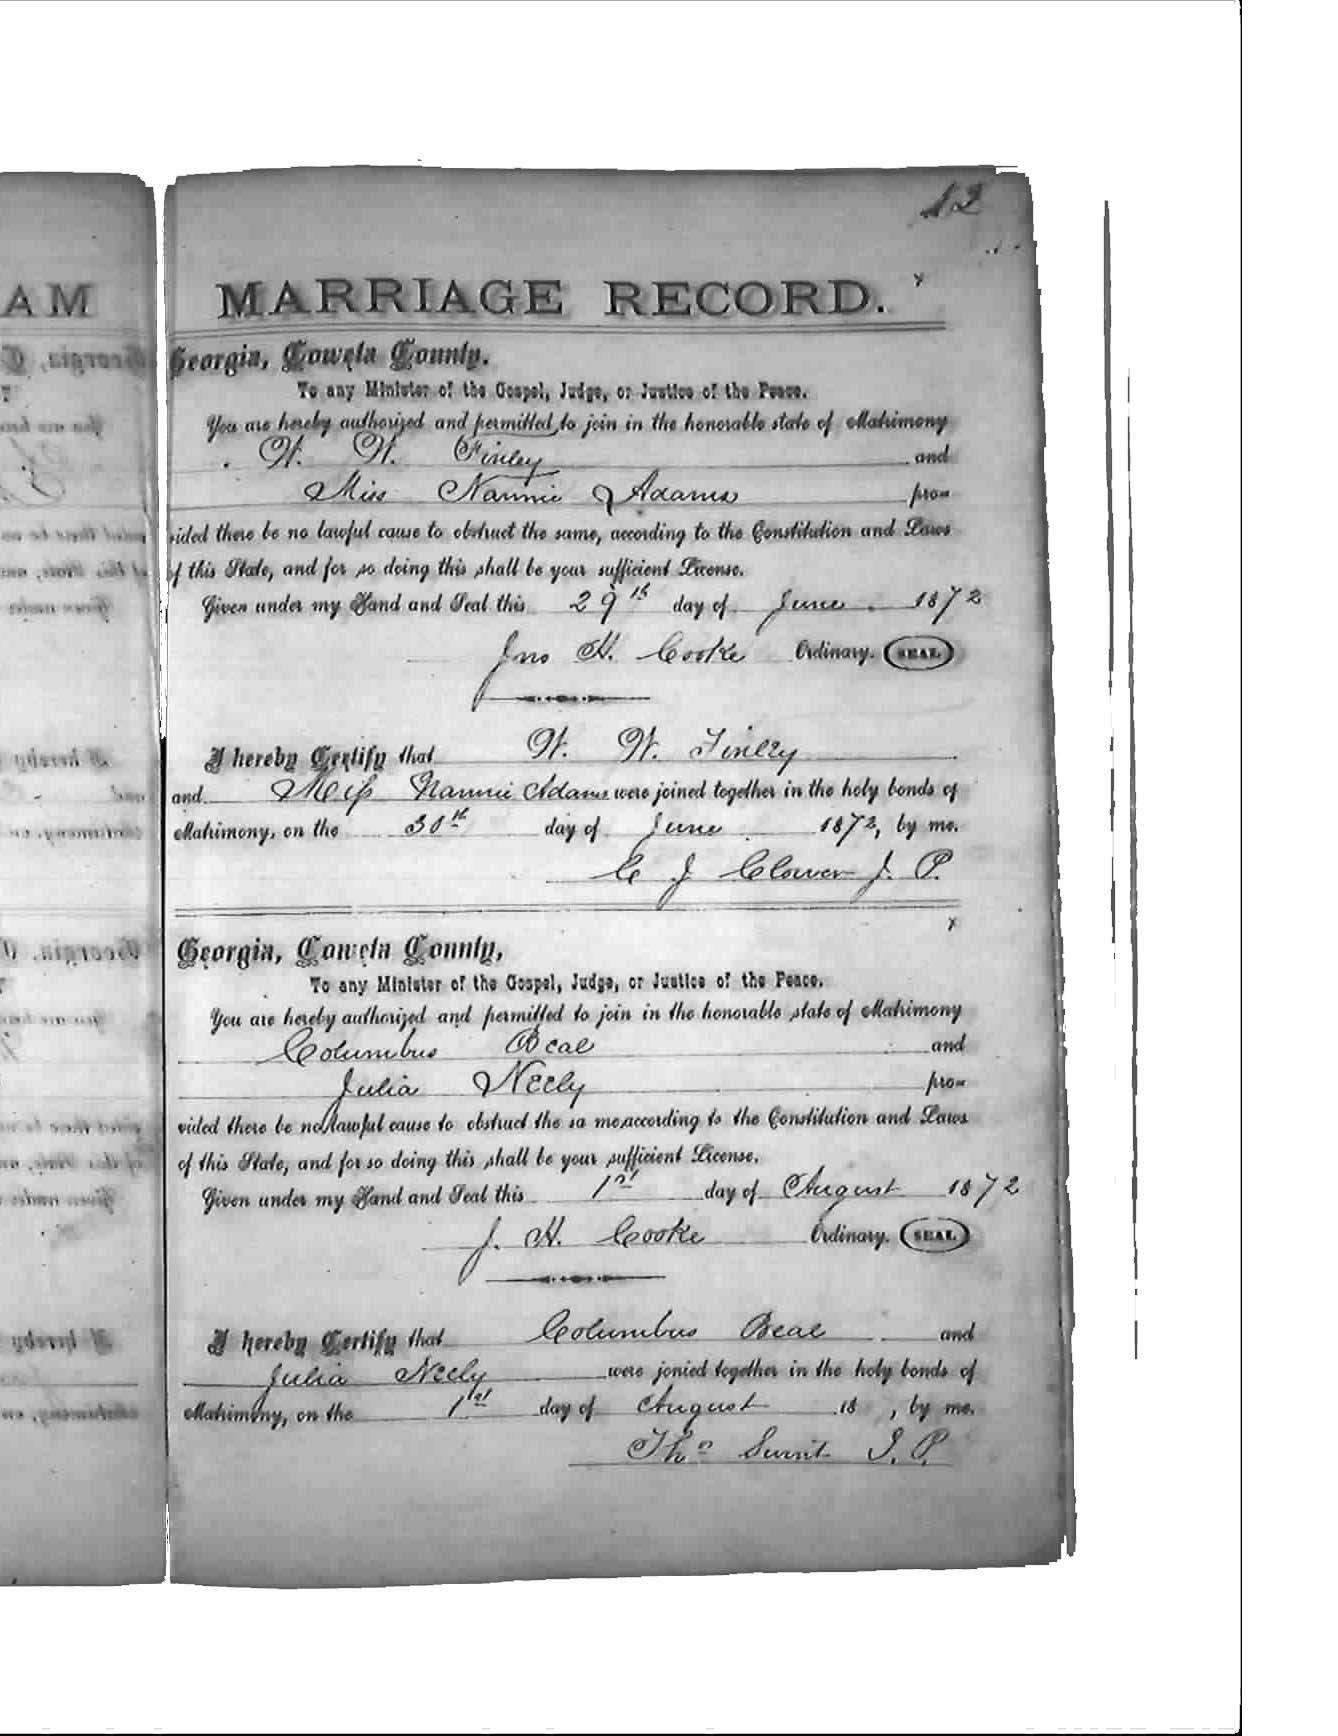 12
MARRIAGE RECORD.
Georgia, Coweta County.
To any Minister of the Gospel, Judge, or Justice of the Peace.
You are hereby authorized and permitted to join in the honorable state of Matrimony
W. W. Finley and
Miss Nannie Adams pro-
vided there be no lawful cause to obstruct the same, according to the Constitution and Laws
of this State, and for so doing this shall be your sufficient License.
Given under my Hand and Seal this 29th day of June 1872
Jno H. Cooke Ordinary. SEAL
I hereby Certify that W. W. Finley
and Miss Nannie Adams were joined together in the holy bonds of
Matrimony, on the 30th day of June 1872, by me.
C J Clower J. P.
Georgia, Coweta County,
To any Minister of the Gospel, Judge, or Justice of the Peace.
You are hereby authorized and permitted to join in the honorable state of Matrimony
Columbus Beal and
Julia Neely pro-
vided there be no lawful cause to obstruct the sa me according to the Constitution and Laws
of this State, and for so doing this shall be your sufficient License.
Given under my Hand and Seal this 1st day of August 1872
J. H. Cooke Ordinary. SEAL
I hereby Certify that Columbus Beal and
Julia Neely were jonied together in the holy bonds of
Matrimony, on the 1st day of August 18 , by me.
Thos J. P.